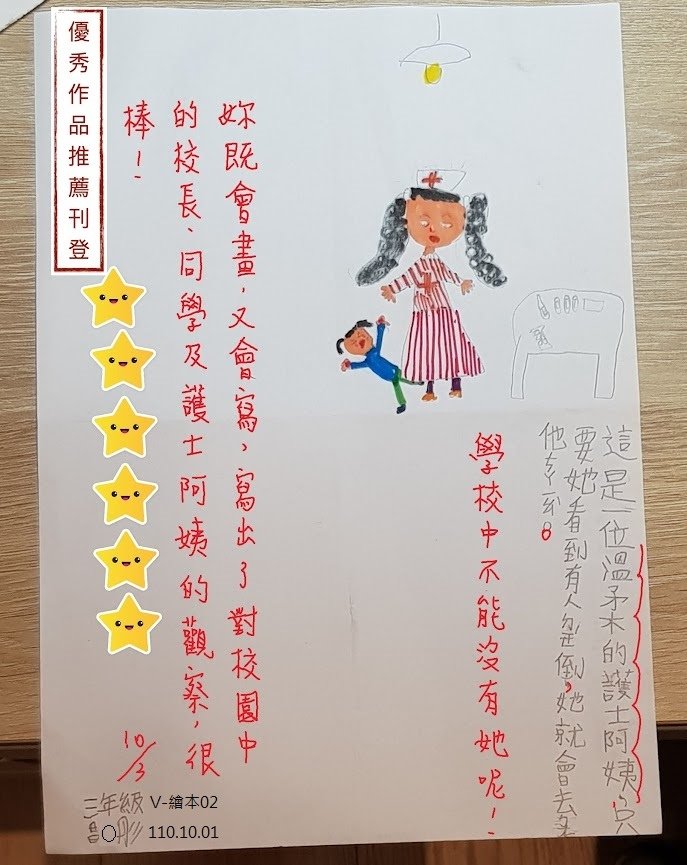 這是一位溫柔的護士阿姨，只
要她看到有人倒，她就會去
他
學校中不能沒有她呢！
妳既會畫，又會寫，寫出了對校園中
的校長、同學及護士阿姨的觀察，很
棒！
10/3
優秀作品推薦刊登
三年級 V-繪本02
○彤 110.10.01